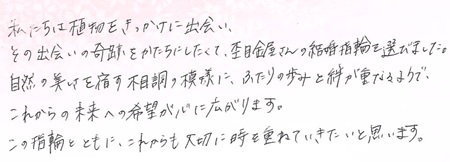 私たちは植物をきっかけに出会い、
その出会いの奇跡をかたちにしたくて、杢目金屋さんの結婚指輪を選びました。
自然の美しさを宿す木目調の模様に、ふたりの歩みと絆が重なるようで、
これからの未来への希望が心に広がります。
この指輪とともに、これからも大切に時を重ねていきたいと思います。